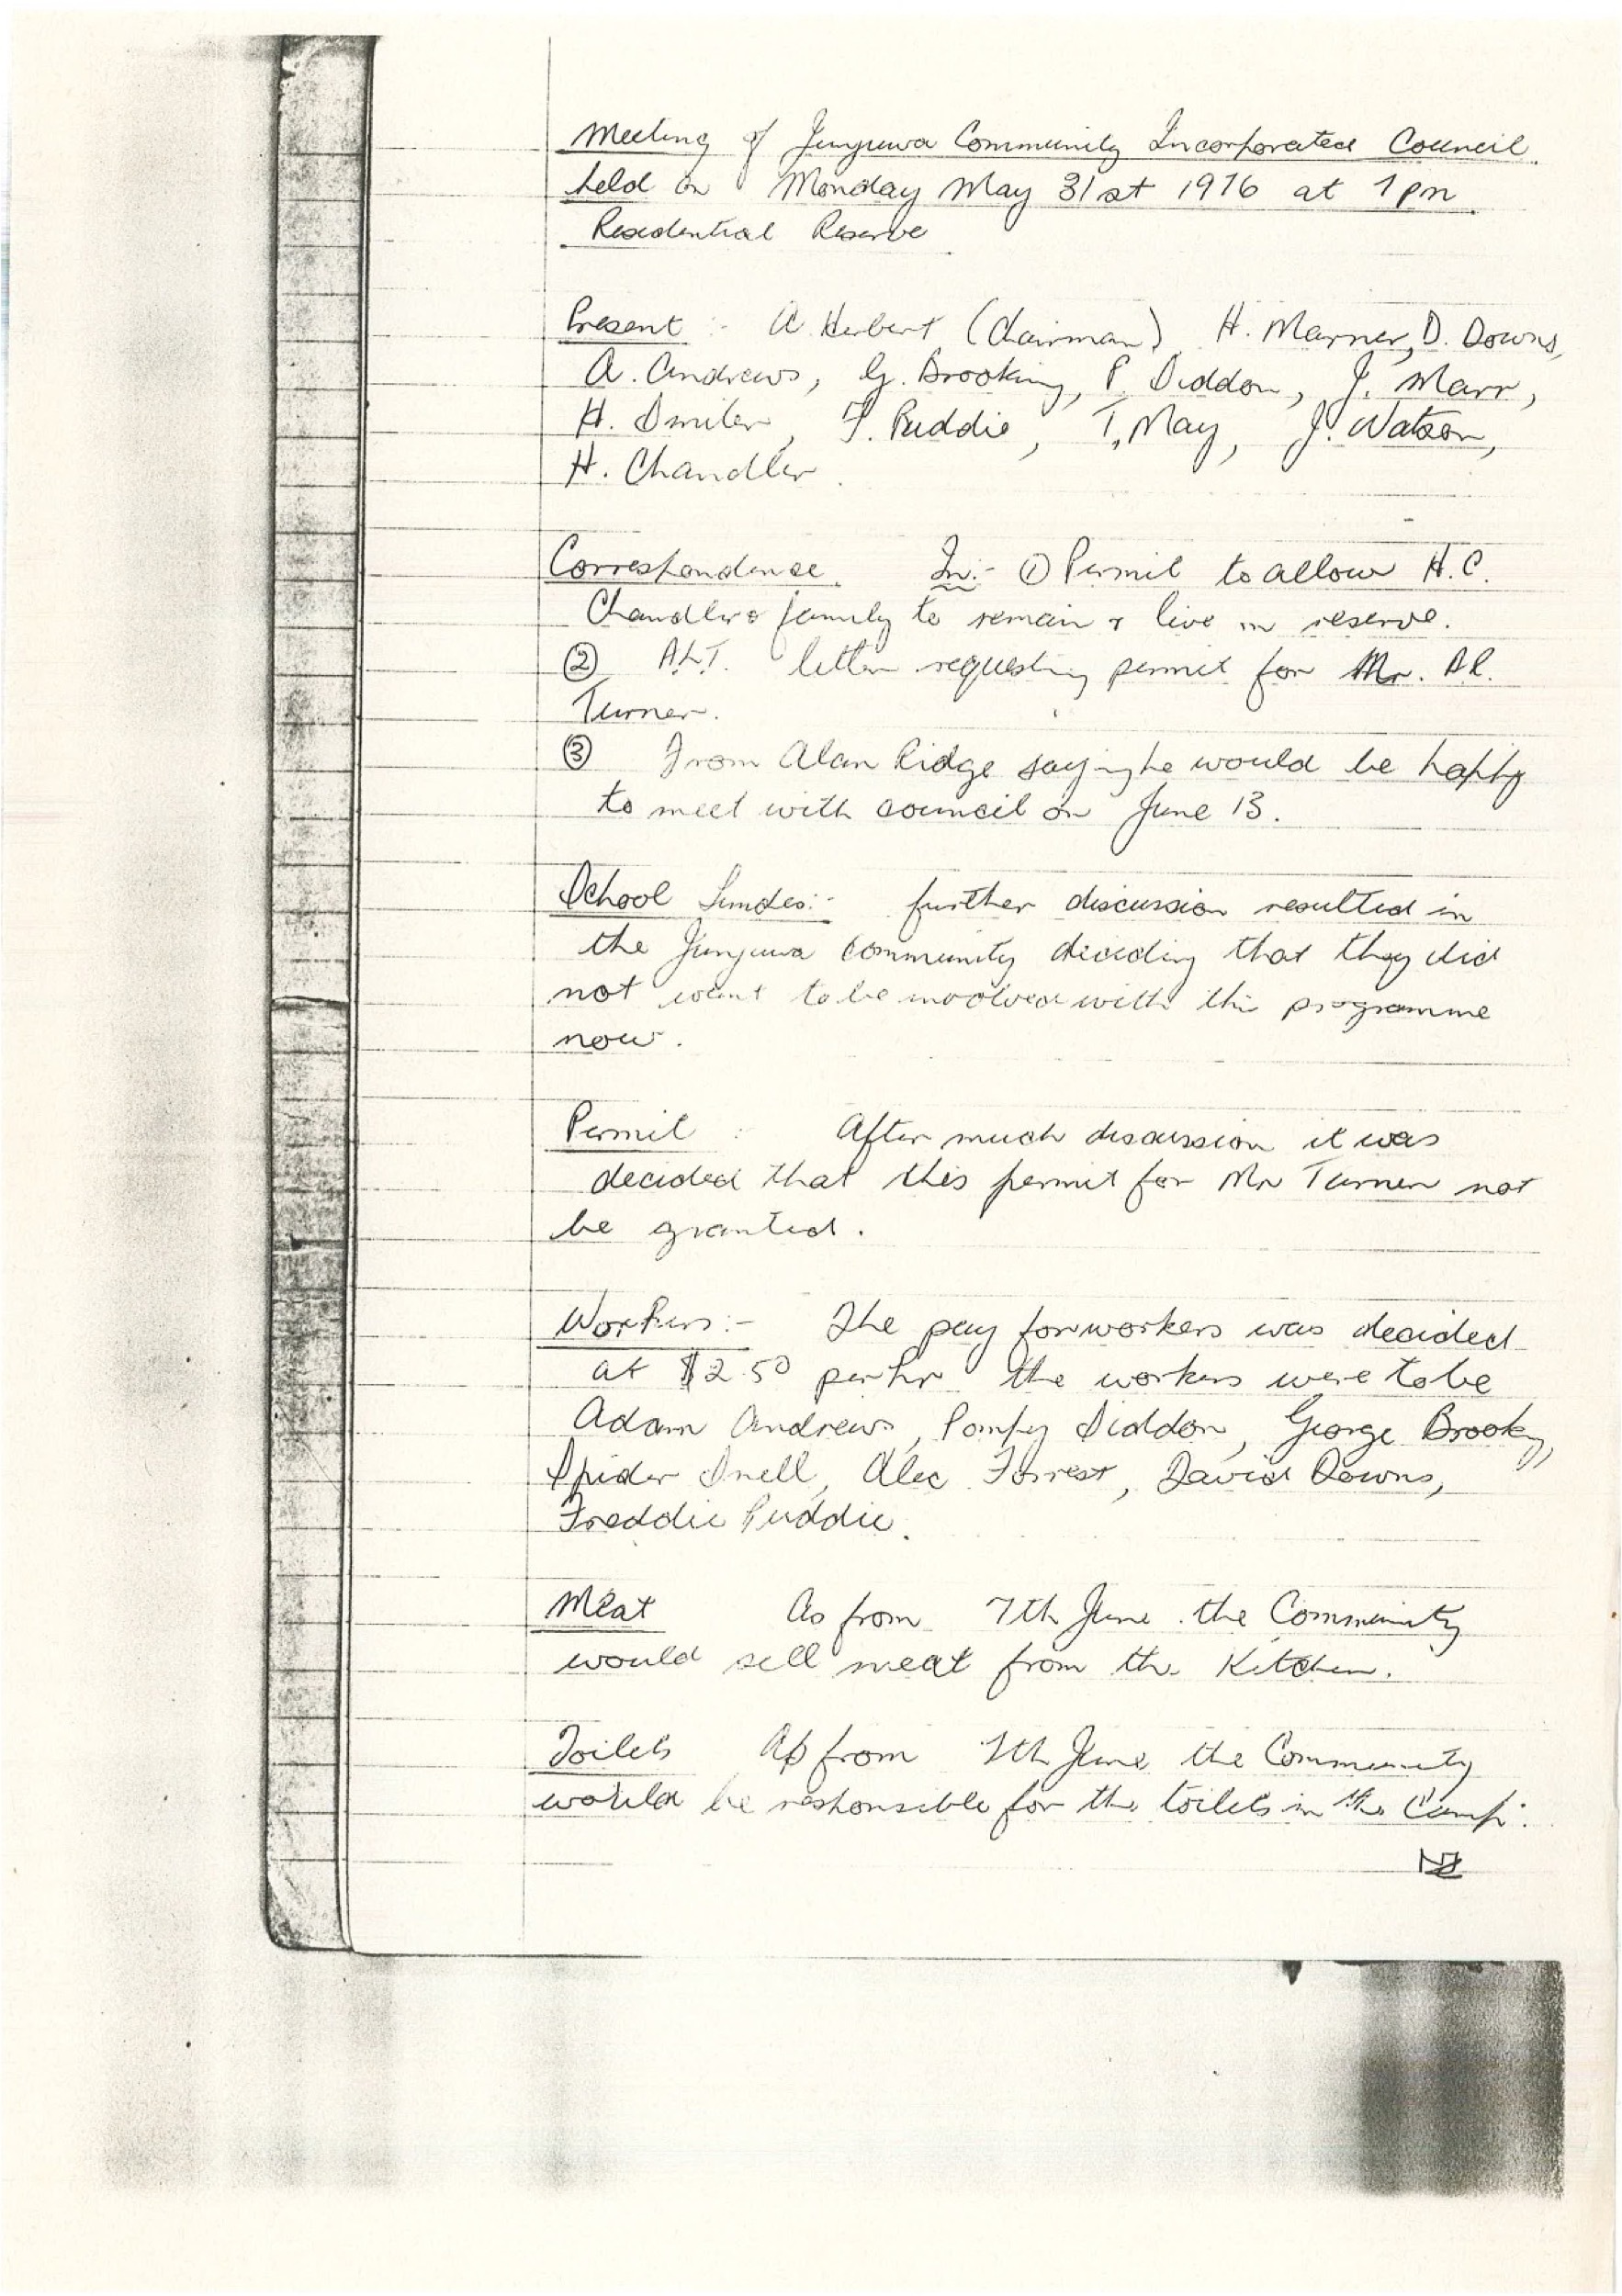 Meeting of Junjuwa Community Incorporated Council
held on Monday May 31st 1976 at 1pm.
Residential Reserve
Present :- A. Herbert (Chairman) H. Marner, D. Downs,
A. Andrews, G. Brooking, P. Siddon, J. Marr,
H. Smiler, F. Puddie, T. May, J. Watson,
H. Chandler.
Correspondence. In:- ① Permit to allow H.C.
Chandlers family to remain & live in reserve.
② A.L.T. letter requesting permit for Mr. A.R.
Turner.
③ From Alan Ridge saying he would be happy
to meet with council on June 13.
School :- further discussion resulted in
the Junjuwa community deciding that they did
not want to be involved with this programme
now.
Permit : After much discussion it was
decided that this permit for Mr Turner not
be granted.
Workers:- The pay for workers was decided
at $2.50 per hr the workers were to be
Adam Andrews, Pompy Siddon, George Brooking,
Spider Snell, Alec Forrest, David Downs,
Freddie Puddie.
Meat As from 7th June the Community
would sell meat from the Kitchen.
Toilets As from 7th June the Community
would be responsible for the toilets in the Camp.